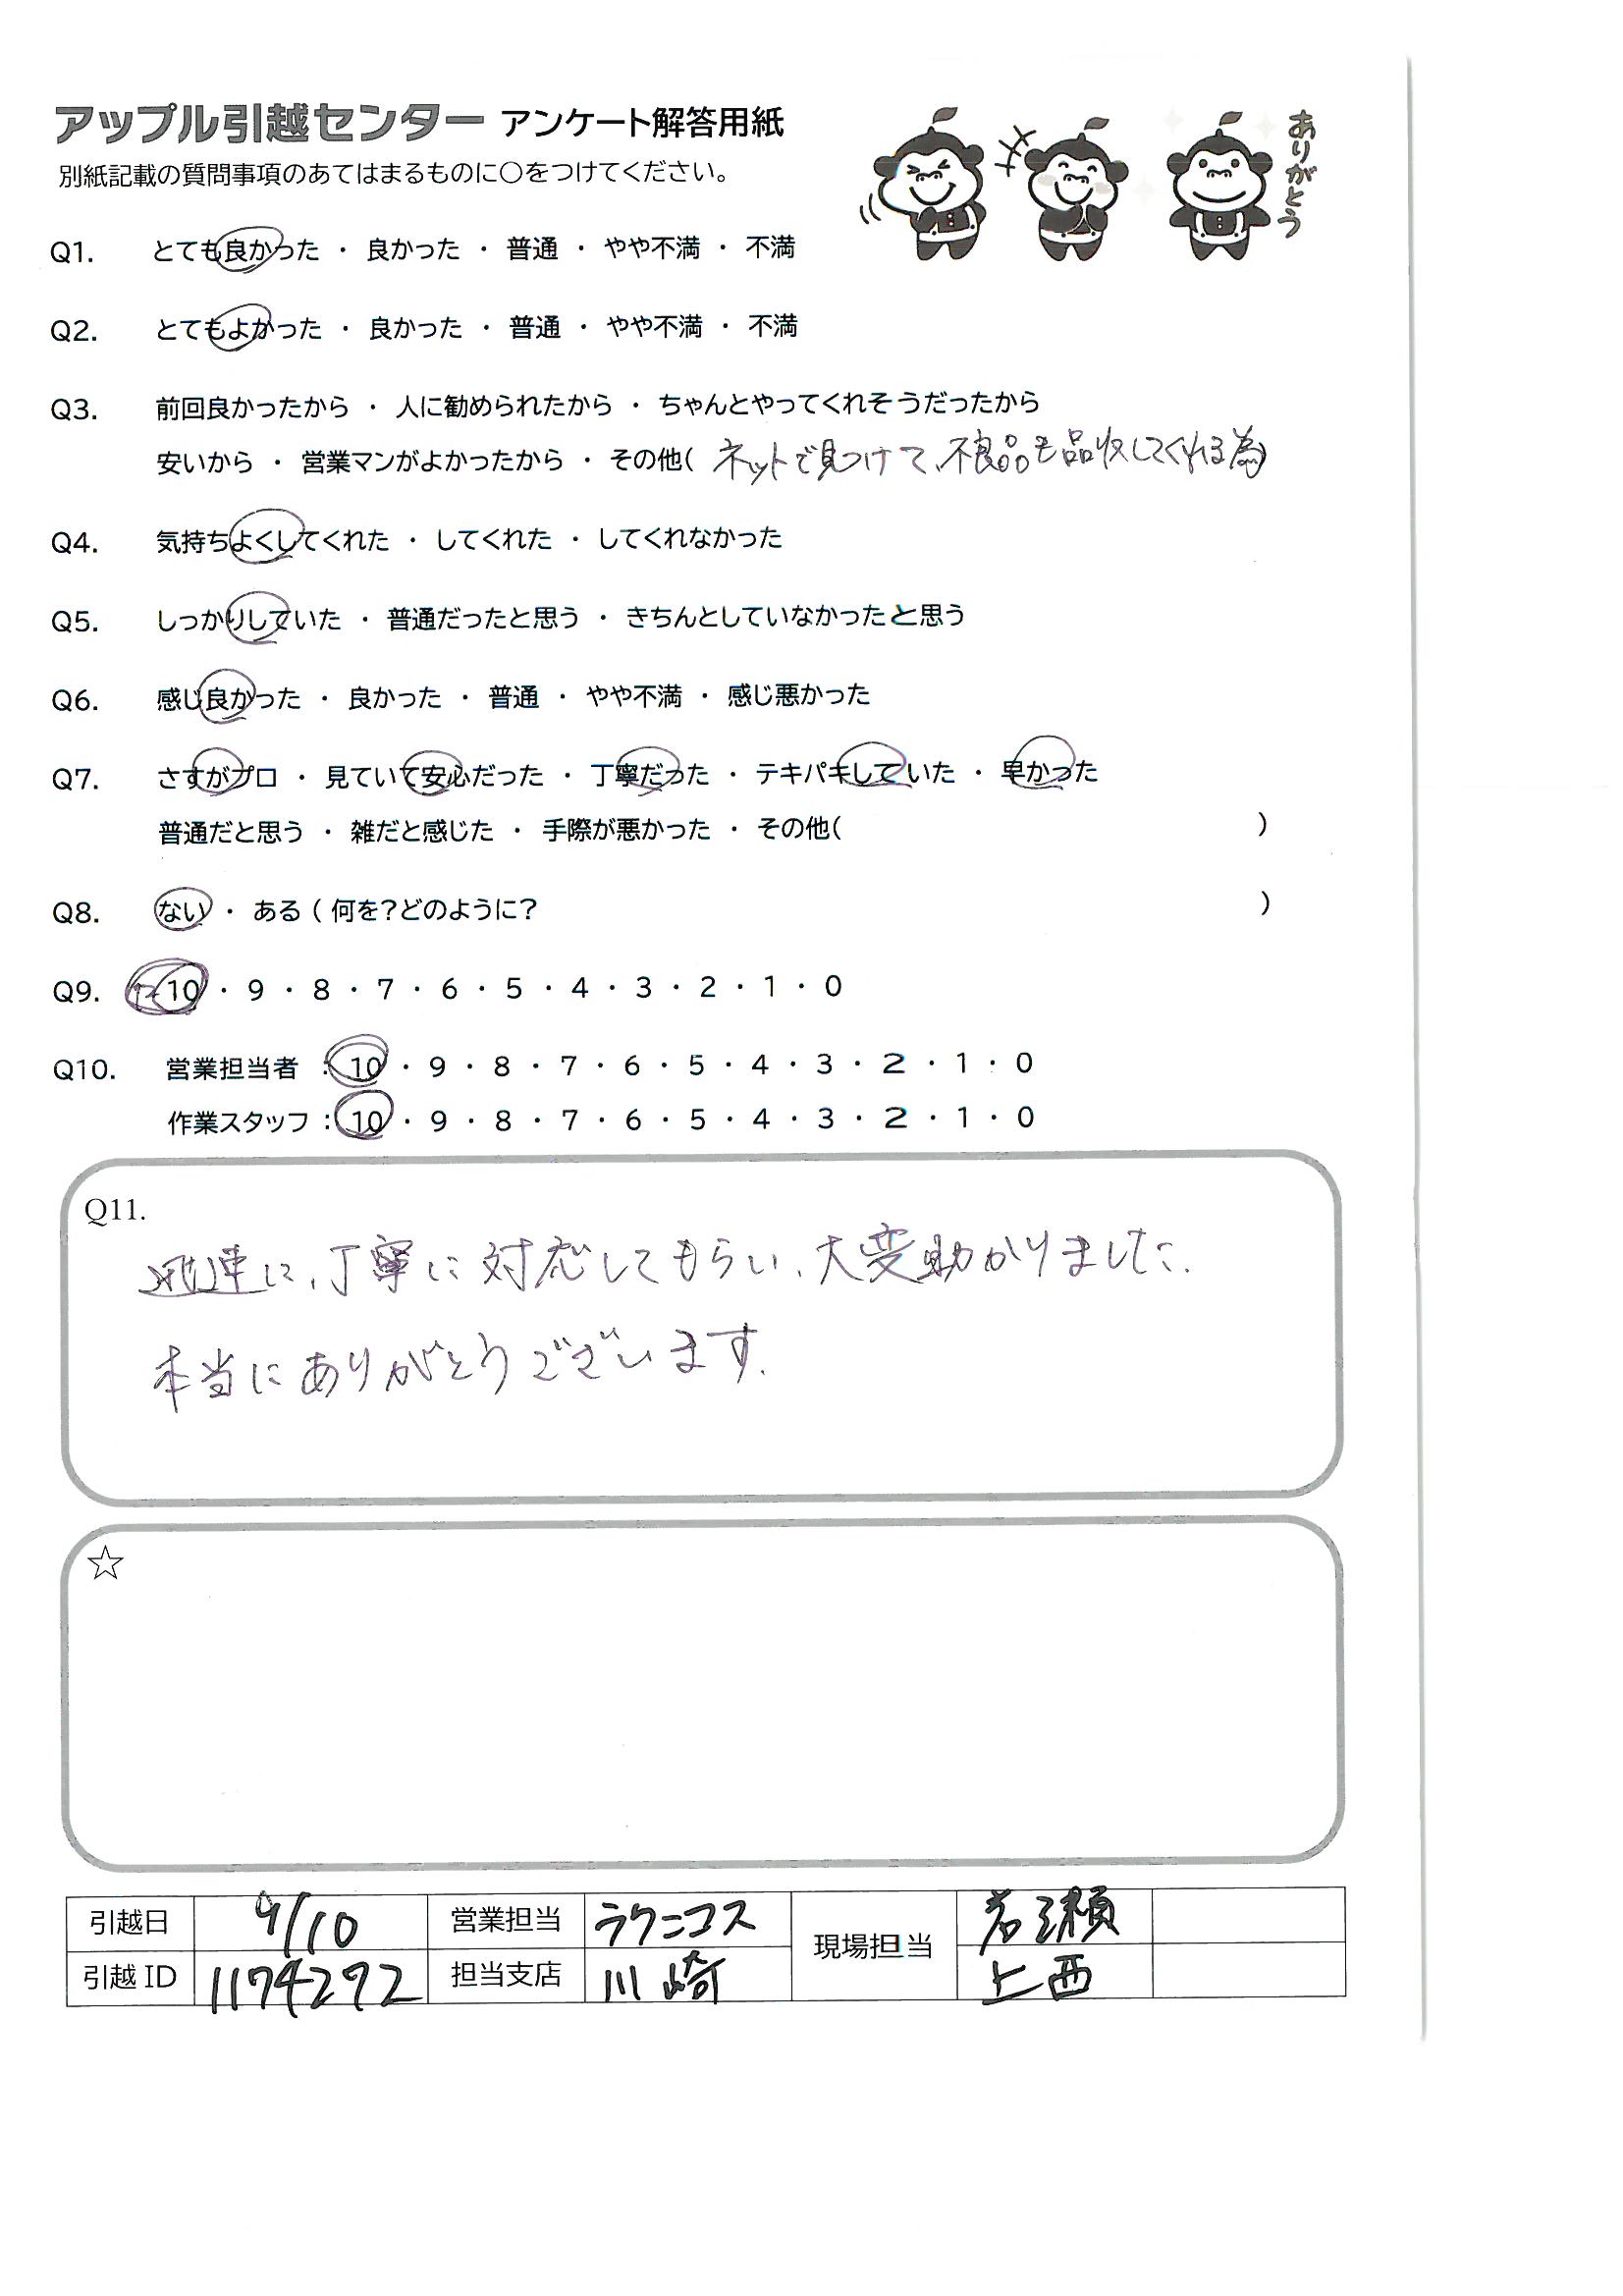 アップル引越センター アンケート解答用紙
別紙記載の質問事項のあてはまるものに○をつけてください。
ありがとう
Q1. とても良かった ・ 良かった ・ 普通 ・ やや不満 ・ 不満
Q2. とてもよかった ・ 良かった ・ 普通 ・ やや不満 ・ 不満
Q3. 前回良かったから ・ 人に勧められたから ・ ちゃんとやってくれそうだったから
安いから ・ 営業マンがよかったから ・ その他( ネットで見つけて、不良品も品収してくれる為)
Q4. 気持ちよくしてくれた ・ してくれた ・ してくれなかった
Q5. しっかりしていた ・ 普通だったと思う ・ きちんとしていなかったと思う
Q6. 感じ良かった ・ 良かった ・ 普通 ・ やや不満 ・ 感じ悪かった
Q7. さすがプロ ・ 見ていて安心だった ・ 丁寧だった ・ テキパキしていた ・ 早かった
普通だと思う ・ 雑だと感じた ・ 手際が悪かった ・ その他( )
Q8. ない ・ ある ( 何を?どのように? )
Q9. 10 ・ 9 ・ 8 ・ 7 ・ 6 ・ 5 ・ 4 ・ 3 ・ 2 ・ 1 ・ 0
Q10. 営業担当者 : 10 ・ 9 ・ 8 ・ 7 ・ 6 ・ 5 ・ 4 ・ 3 ・ 2 ・ 1 ・ 0
作業スタッフ : 10 ・ 9 ・ 8 ・ 7 ・ 6 ・ 5 ・ 4 ・ 3 ・ 2 ・ 1 ・ 0
Q11.
迅速に、丁寧に対応してもらい、大変助かりました.
本当にありがとうございます.
☆
引越日 9/10 営業担当 ラクニコス 現場担当 岩瀬
引越ID 1174292 担当支店 川崎 上西